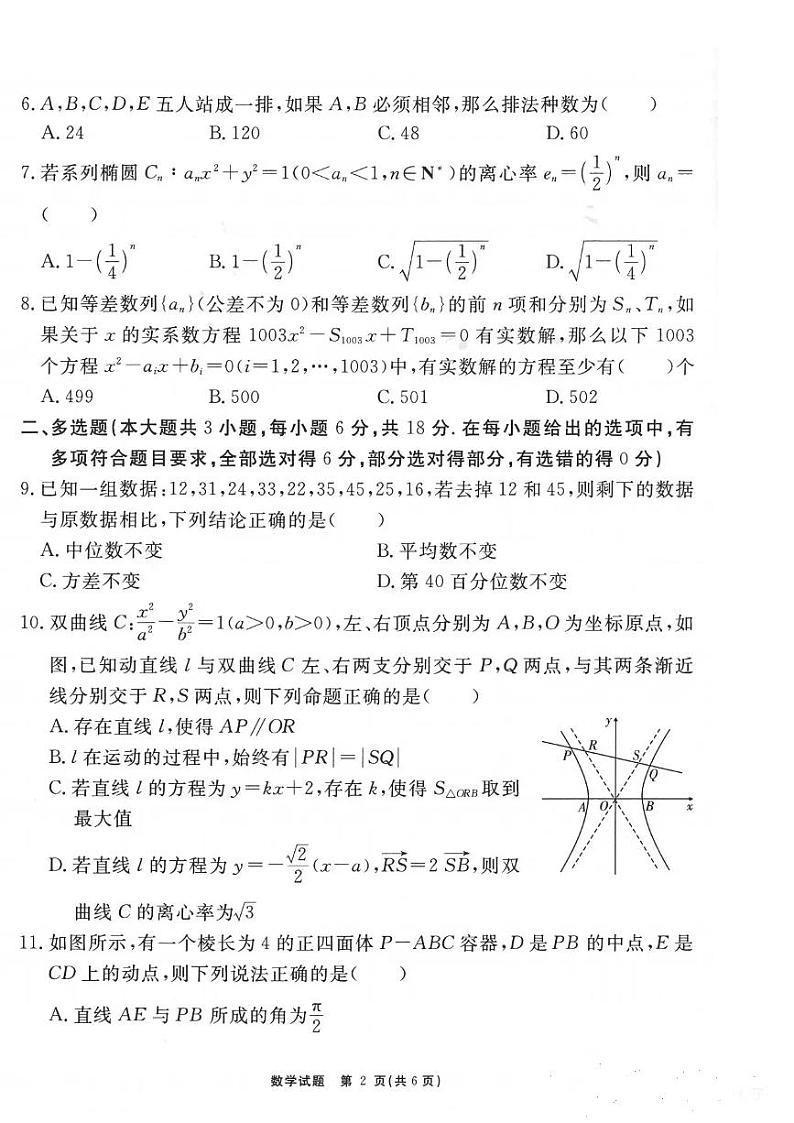 6. A,B,C,D,E 五人站成一排,如果 A,B 必须相邻,那么排法种数为(　　)
A. 24　B. 120　C. 48　D. 60
7. 若系列椭圆 Cₙ：aₙx²+y²=1(0<aₙ<1,n∈N*)的离心率 eₙ=(1/2)ⁿ,则 aₙ=
(　　)
A. 1-(1/4)ⁿ　B. 1-(1/2)ⁿ　C. √(1-(1/2)ⁿ)　D. √(1-(1/4)ⁿ)
8. 已知等差数列{aₙ}(公差不为 0)和等差数列{bₙ}的前 n 项和分别为 Sₙ、Tₙ,如
果关于 x 的实系数方程 1003x²-S₁₀₀₃x+T₁₀₀₃=0 有实数解,那么以下 1003
个方程 x²-aᵢx+bᵢ=0(i=1,2,…,1003)中,有实数解的方程至少有(　　)个
A. 499　B. 500　C. 501　D. 502
二、多选题(本大题共 3 小题,每小题 6 分,共 18 分. 在每小题给出的选项中,有
多项符合题目要求,全部选对得 6 分,部分选对得部分,有选错的得 0 分)
9. 已知一组数据:12,31,24,33,22,35,45,25,16,若去掉 12 和 45,则剩下的数据
与原数据相比,下列结论正确的是(　　)
A. 中位数不变　B. 平均数不变
C. 方差不变　D. 第 40 百分位数不变
10. 双曲线 C:x²/a²-y²/b²=1(a>0,b>0),左、右顶点分别为 A,B,O 为坐标原点,如
图,已知动直线 l 与双曲线 C 左、右两支分别交于 P,Q 两点,与其两条渐近
线分别交于 R,S 两点,则下列命题正确的是(　　)
A. 存在直线 l,使得 AP∥OR
B. l 在运动的过程中,始终有|PR|=|SQ|
C. 若直线 l 的方程为 y=kx+2,存在 k,使得 S△ORB 取到
最大值
D. 若直线 l 的方程为 y=-√2/2(x-a),RS→=2 SB→,则双
曲线 C 的离心率为√3
y
P
R
S
Q
A
O
B
x
11. 如图所示,有一个棱长为 4 的正四面体 P-ABC 容器,D 是 PB 的中点,E 是
CD 上的动点,则下列说法正确的是(　　)
A. 直线 AE 与 PB 所成的角为π/2
数学试题　第 2 页(共 6 页)